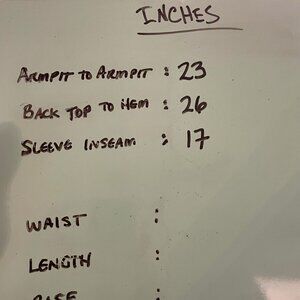 INCHES
ARMPIT TO ARMPIT : 23
BACK TOP TO HEM : 26
SLEEVE INSEAM : 17
WAIST :
LENGTH :
RISE :